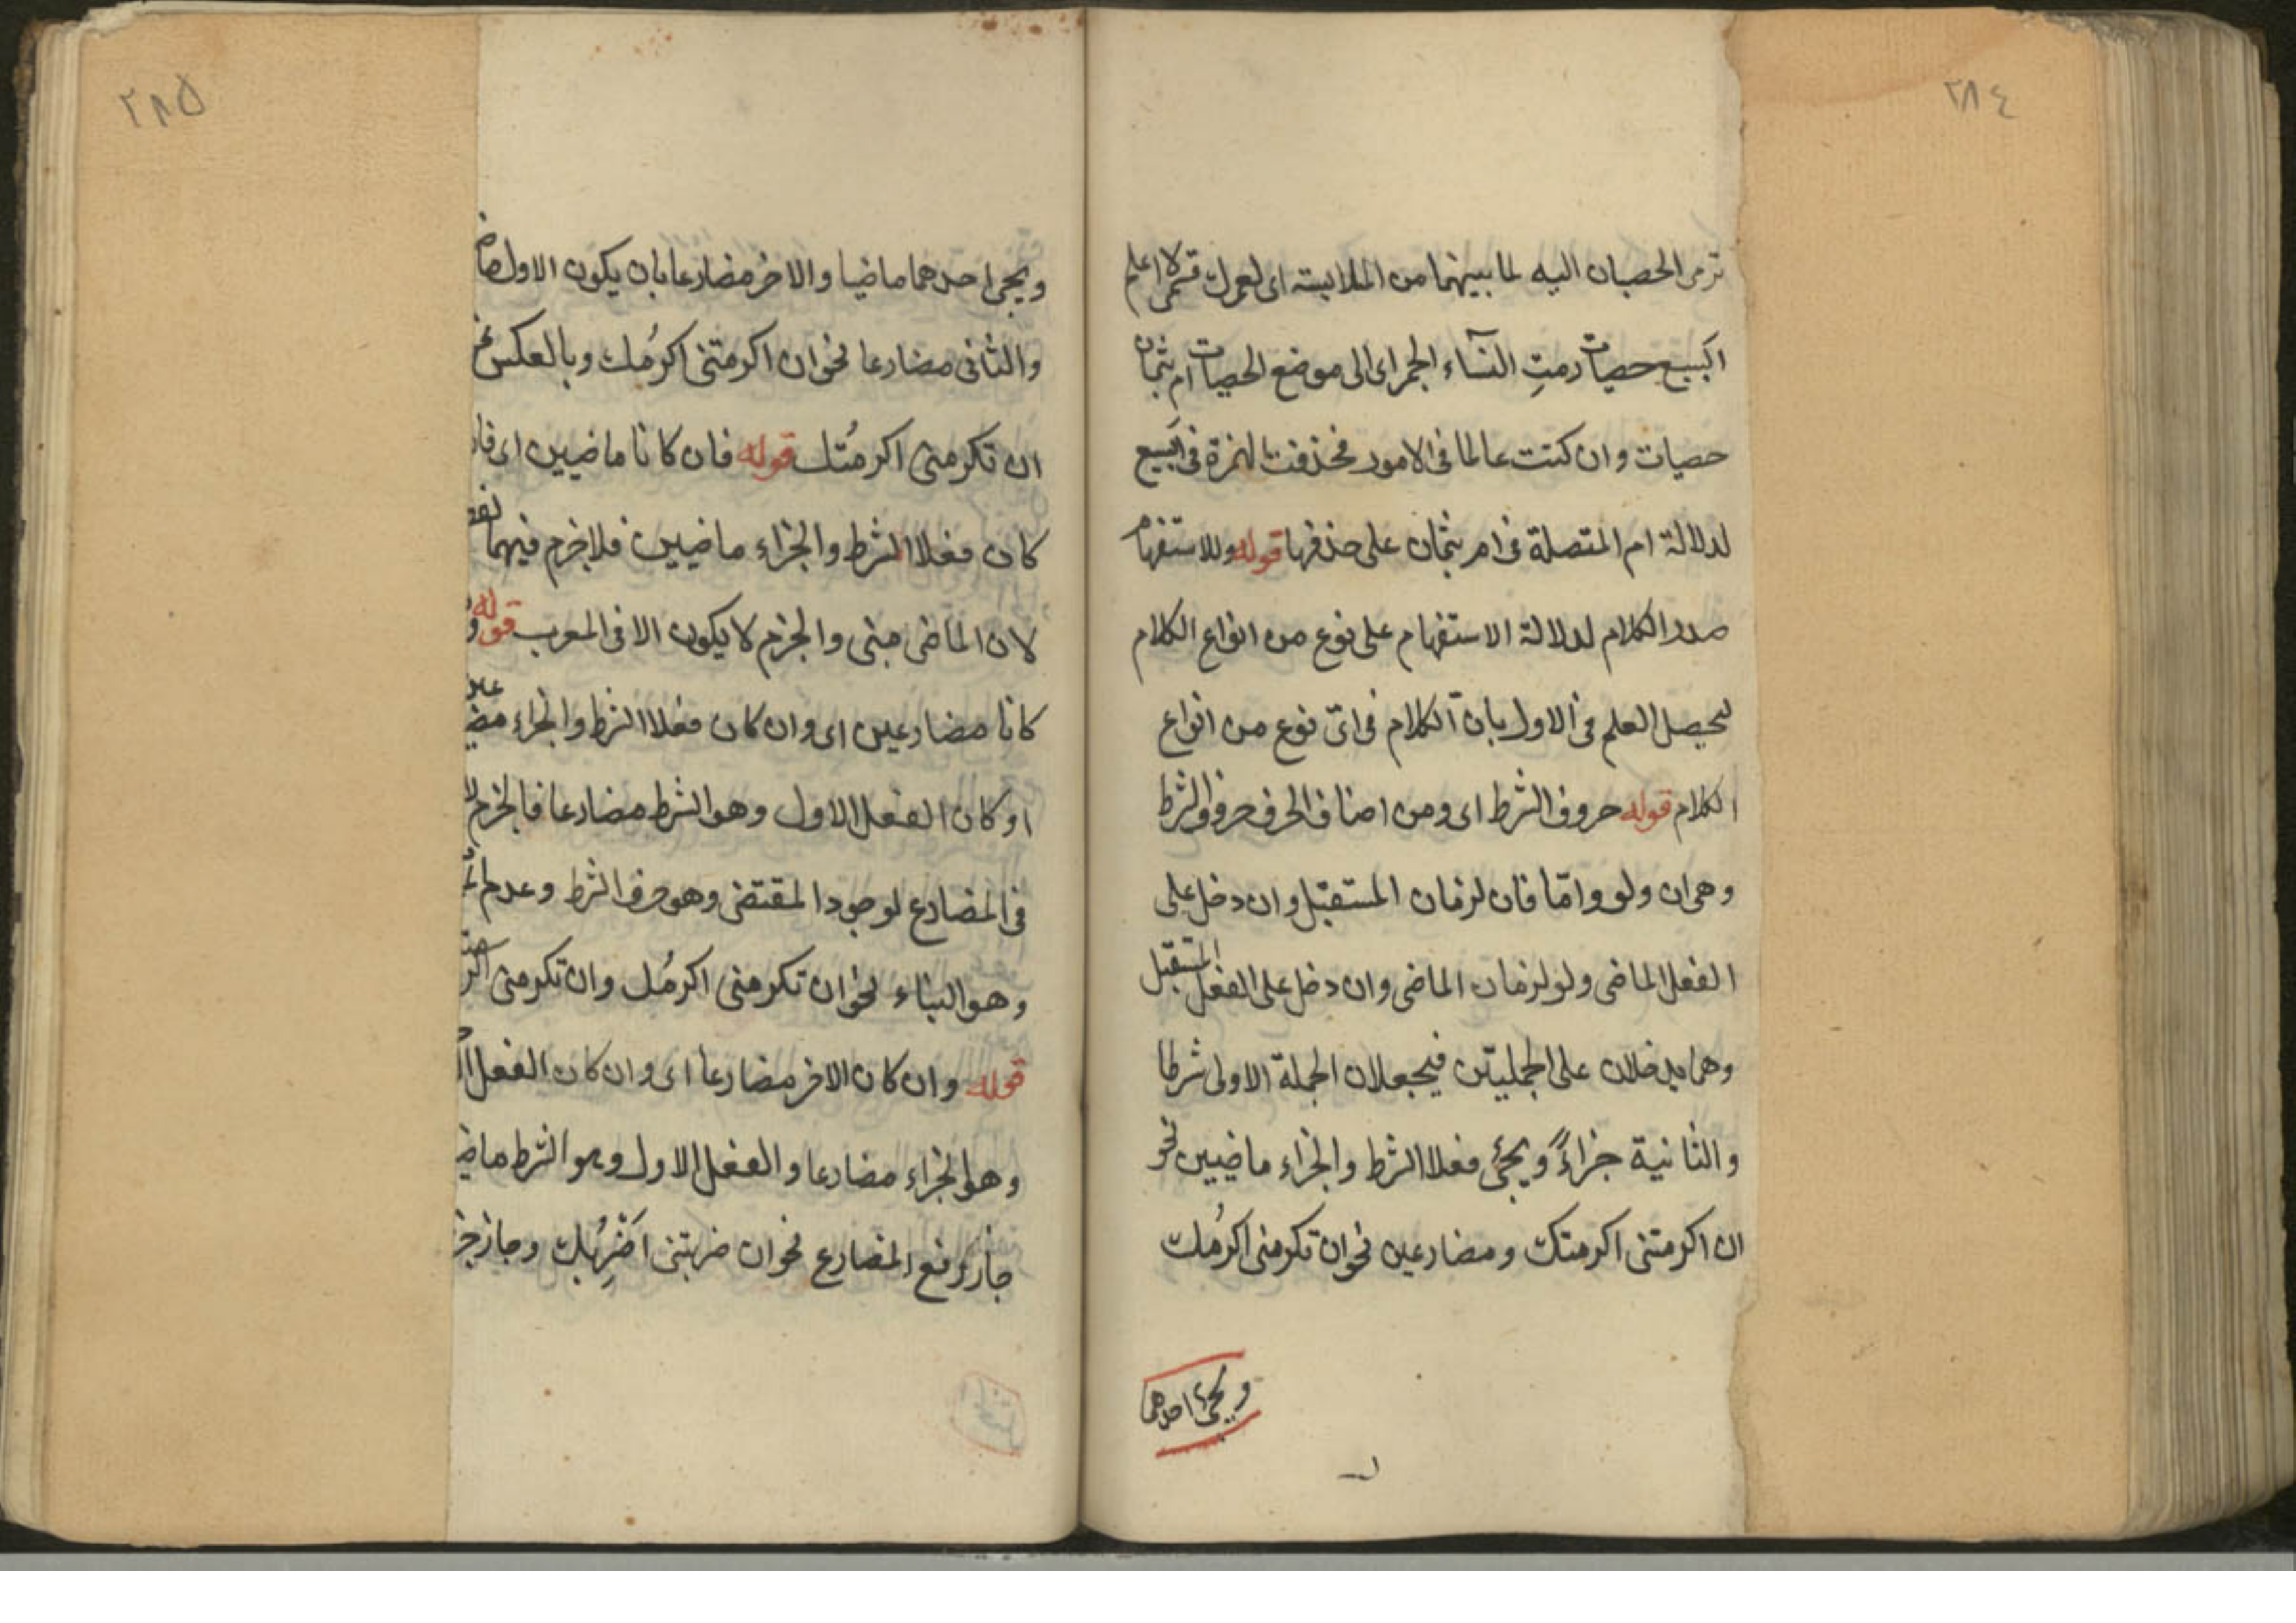 ٢٨٤
ترمى الحصيان اليه لما بينهما من الملابسة اى لعمرك قسمى لا اعلم
أبسبع حصيات رمت النسآء الجمر اى الى موضع الحصيات ام بثمان
حصيات وان كنت عالما فى الامور فحذفت الهمزة فى أبسبع
لدلالة ام المتصلة فى ام بثمان على حذفها قوله وللاستفهام
صدر الكلام لدلالة الاستفهام على نوع من انواع الكلام
ليحصل العلم فى الاول بان الكلام فى اىّ نوع من انواع
الكلام قوله حروف الشرط اى ومن اصناف الحرف حروف الشرط
وهى ان ولو وامّا فان لزمان المستقبل وان دخل على
الفعل الماضى ولو لزمان الماضى وان دخل على الفعل المستقبل
وهما يدخلان على الجملتين فيجعلان الجملة الاولى شرطا
والثانية جزاءً ويجئ فعلا الشرط والجزاء ماضيين نحو
ان اكرمتنى اكرمتك ومضارعين نحو ان تكرمنى اكرمُك
ويجئ احدهما
٢٨٥
ويجى احدهما ماضيا والاخر مضارعا بان يكون الاول ماض
والثانى مضارعا نحو ان اكرمتنى اكرمُك وبالعكس نح
ان تكرمنى اكرمتُك قوله فان كانا ماضيين اى فان
كان فعلا الشرط والجزاء ماضيين فلا جزم فيهما لفظ
لان الماضى مبنى والجزم لا يكون الا فى المعرب قوله و
كانا مضارعين اى وان كان فعلا الشرط والجزاء مضارعين
او كان الفعل الاول وهو الشرط مضارعا فالجزم لا
فى المضارع لوجود المقتضى وهو حرف الشرط وعدم
وهو البناء نحو ان تكرمنى اكرمُك وان تكرمنى اكرمت
قوله وان كان الاخر مضارعا اى وان كان الفعل
وهو الجزاء مضارعا والفعل الاول وهو الشرط ماضي
جاز رفع المضارع نحو ان ضربتنى اَضْرِبُك وجاز جز